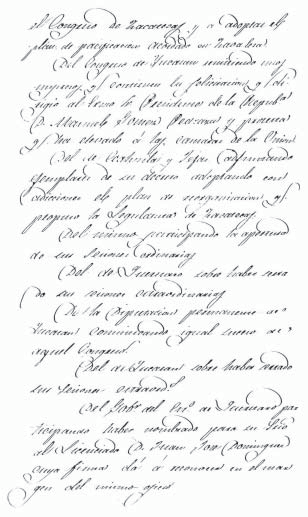 el Congreso de Zacatecas, y a adoptar el
plan de pacificacion acordado en Zavaleta
Del Congreso de Yucatan remitiendo unos
impresos qe. contienen la felicitacion qe. di
rigio al Exmo. Sr. Presidente de la Republica
D. Manuel Gomez Pedraza y protesta
qe. ha elevado á las camaras de la Union
Del de Coahuila y Tejas acompañando
ejemplares de su decreto adoptando con
adiciones el plan de pacificacion qe.
propuso la Legislatura de Zacatecas
Del mismo participando la apertura
de sus sesiones ordinarias
Del de sobre haber cerra
do sus sesiones extraordinarias
De la Diputacion permanente de
Yucatan comunicando igual suceso de
aquel Congreso.
Del de Yucatan sobre haber cerrado
sus sesiones extraord.s
Del Gob.or del Es.o de Queretaro par
ticipando haber nombrado para su Srio.
al Licenciado D. Juan Jose Dominguez
cuya firma dá á reconocer en el mar
gen del mismo oficio